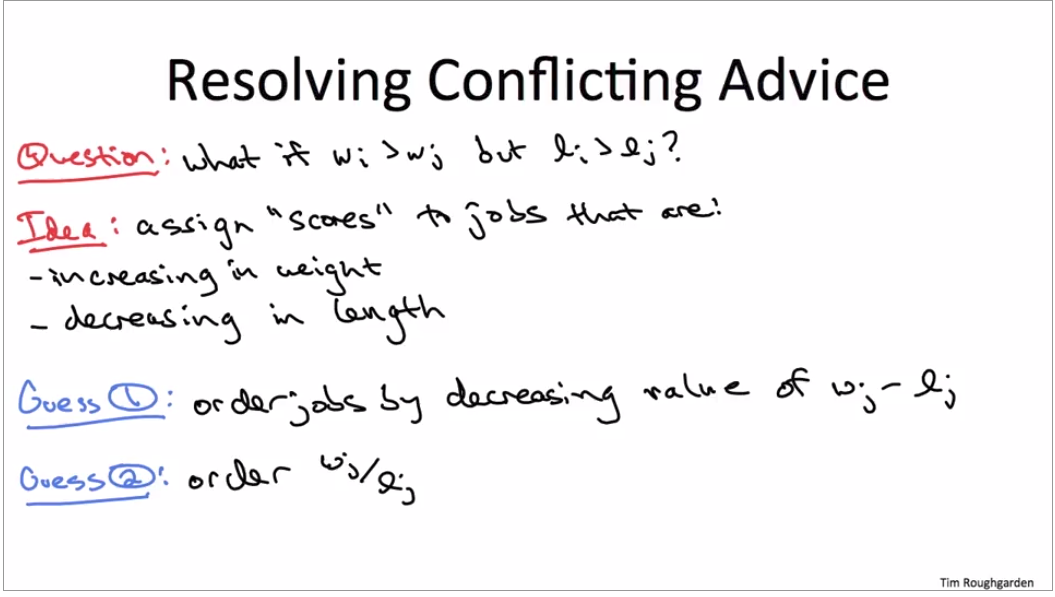 Resolving Conflicting Advice
Question: what if wi > wj but li > lj?
Idea: assign "scores" to jobs that are:
- increasing in weight
- decreasing in length
Guess ①: order jobs by decreasing value of wj - lj
Guess ②: order wj/lj
Tim Roughgarden